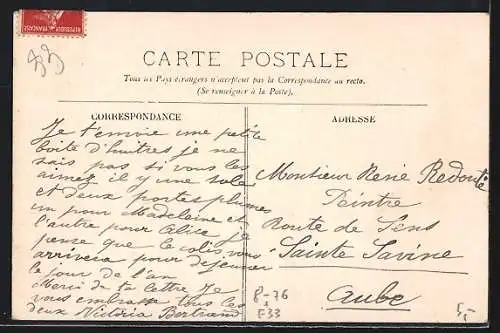 REPUBLIQUE FRANÇAISE
CARTE POSTALE
Tous les Pays étrangers n'acceptent pas la Correspondance au recto.
(Se renseigner à la Poste).
CORRESPONDANCE
Je t'envoie une petite
boite d'huitres je ne
sais pas si vous les
aimez il y une sole
et deux portes plumes
un pour Madeleine et
l'autre pour Alice je
pense que le colis vous
arrivera pour dejeuner
le jour de l'an
Merci de ta lettre Je
vous embrasse tous les
deux Victoria Bertrand
ADRESSE
Monsieur René Redouté
Peintre
Route de Sens
Sainte Savine
Aube
8-76
F33